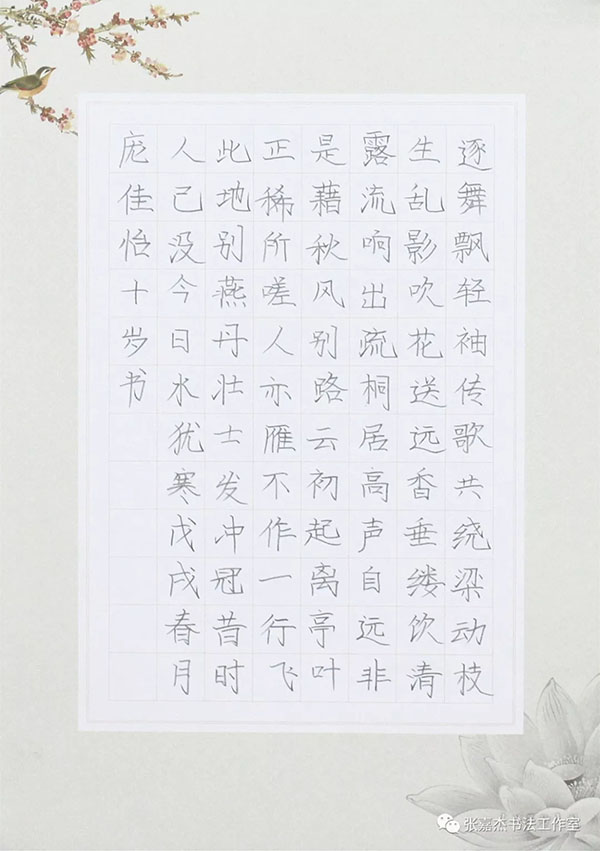 逐舞飘轻袖传歌共绕梁动枝
生乱影吹花送远香垂缕饮清
露流响出疏桐居高声自远非
是藉秋风别路云初起离亭叶
正稀所嗟人亦雁不作一行飞
此地别燕丹壮士发冲冠昔时
人已没今日水犹寒戊戌春月
庞佳怡十岁书
张嘉杰书法工作室